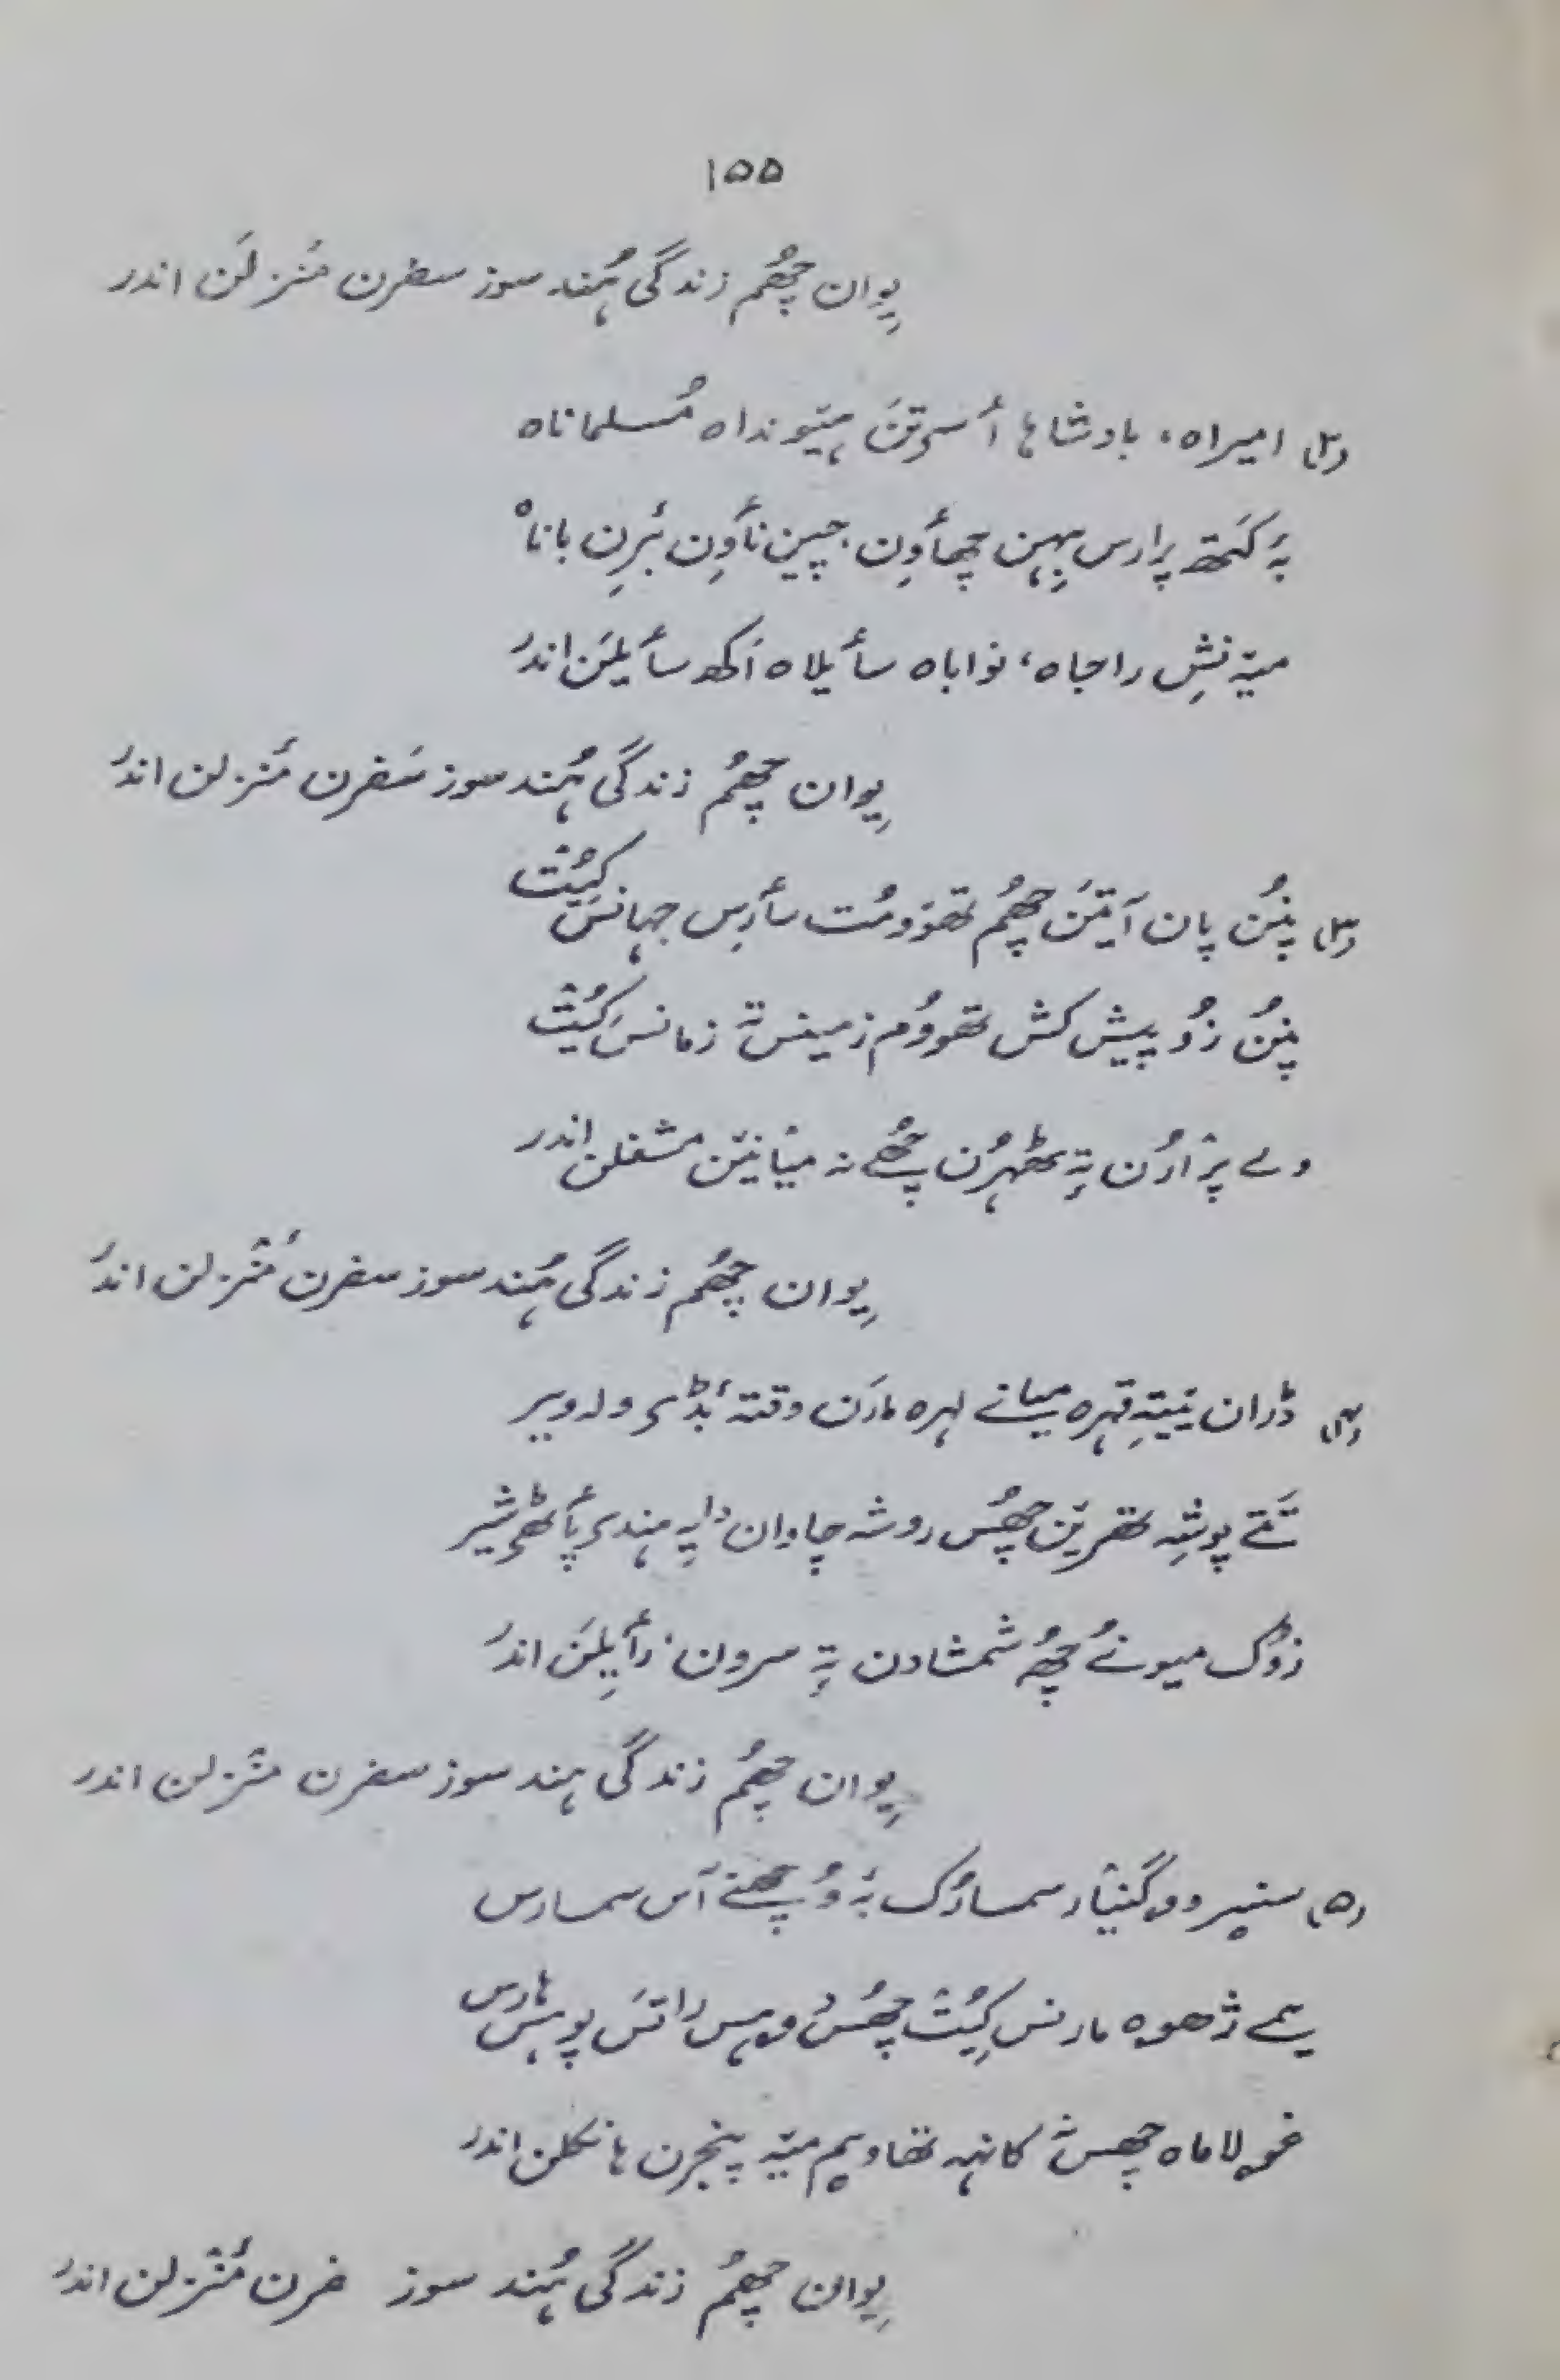 ۱۵۵
یِوان چھُم زندگی ہُند سوز سفرن منزلَن اندر
(۲) امیراہ، بادشاہا أسۍتَن ہیٚونداہ مُسلماناہ
بہٕ کَمٕتھ پرارس بِہن چھاوِن چیٖن ناوِن بَرِن باناہ
میٚہ نِش راجاہ، نواباہ سأیلاہ اَکھ سأیلَن اندر
یِوان چھُم زندگی ہُند سوز سَفرن مَنزلن اندر
(۳) پنُن پان اَتھَن چھُم تھوومُت سأرِس جہانَس کیُت
پنُن زُو پیش کش تھووُم زمینس تہٕ زمانَس کیُت
ولے پرارُن تہٕ ٹھہرُن چھُے نہ میانیٚن مشغلن اندر
یِوان چھُم زندگی ہُند سوز سفرن مَنزلن اندر
(۴) ڈران یَتہِ قہرہ میانے لہرہ مارَن وقتہٕ بٔڈۍ ولہ ویر
تَتے پوشہِ تھرٮ۪ن چھُس روشہ چاوان دایہِ ہندۍ پأٹھۍ شیر
زوٗک میونُے چھُ شمشادن تہٕ سرون، رأیِلَن اندر
یِوان چھُم زندگی ہند سوز سفرن منزلن اندر
(۵) سمسارُک بہٕ وُچھنے آس سمسارس
یمے ژھوہ مارنس کیُت چھُس وہس راتَس پوہس ہارس
غولاماہ چھس کانہہ تھاویم میٚہ پنجرن ہانکلن اندر
یِوان چھُم زندگی ہُند سوز فرن مَنزلن اندر